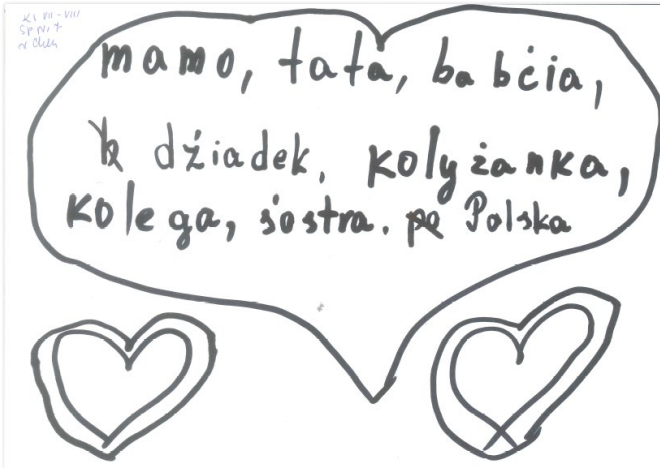 Kl VII-VIII
SP Nr 7
mamo, tata, babćia,
dźiadek, kolyżanka,
kolega, śostra. Polska